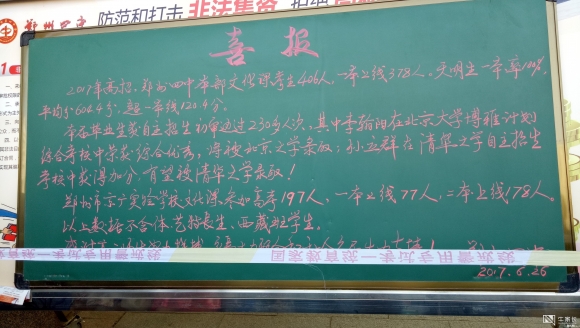 郑州四中 防范和打击 非法集资
喜报
2017年高招，郑州四中本部文化课考生406人，一本上线378人。天明生一本率100%，
平均分604.4分，超一本线120.4分。
本届毕业生获自主招生初审通过230多人次，其中李翰阳在北京大学博雅计划
综合考核中荣获综合优秀，将被北京大学录取；孙亚群在清华大学自主招生
考核中获得加分，有望被清华大学录取！
郑州市京广实验学校文化课参加高考197人，一本上线77人，二本上线178人。
以上数据不含体、艺特长生、西藏班学生。
国家教育统一考试专用警示线
2017.6.26